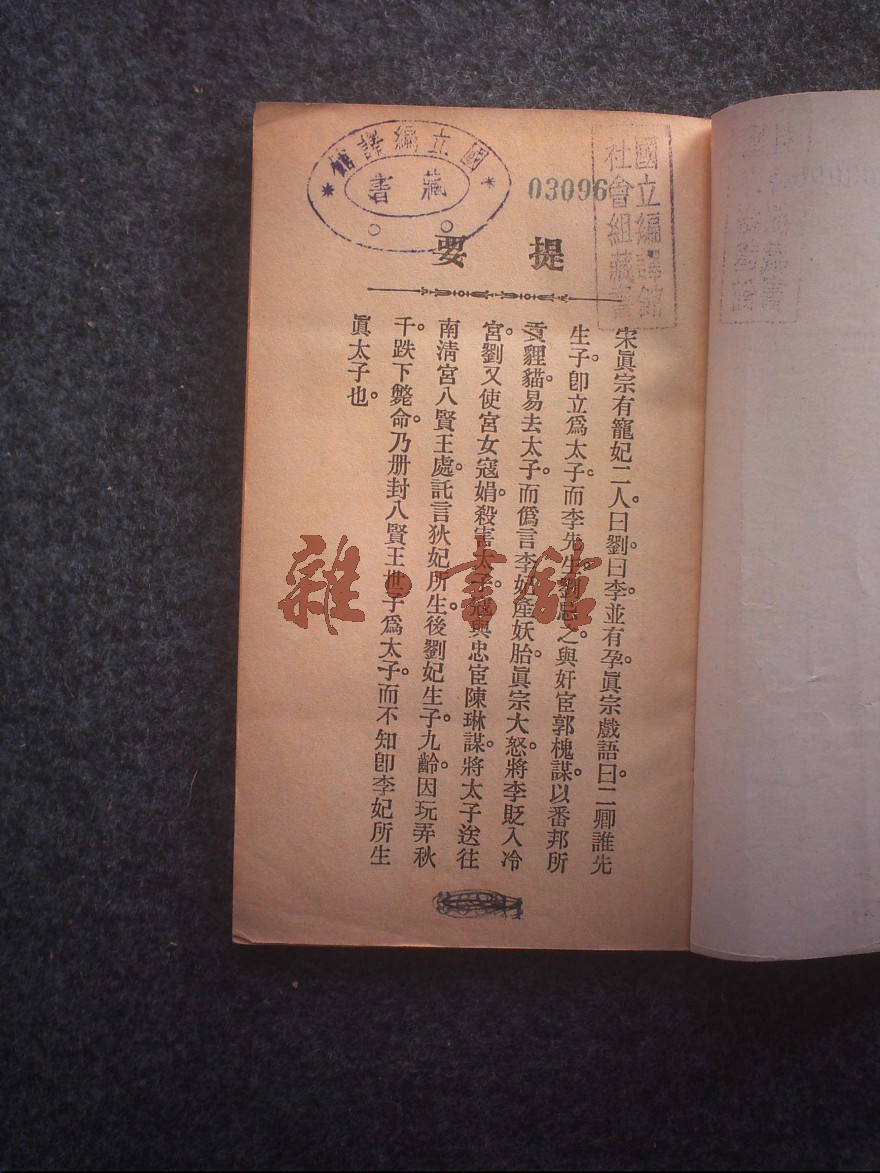 國立編譯館
藏書
03096
國立編譯館
社會組藏書
提要
宋眞宗有寵妃二人。曰劉。曰李。並有孕。眞宗戲語曰。二卿誰先
生子。卽立爲太子。而李先生。劉忌之。與奸宦郭槐謀。以番邦所
貢貍貓。易去太子。而僞言李妃產妖胎。眞宗大怒。將李貶入冷
宮。劉又使宮女寇娟。殺害太子。寇與忠宦陳琳謀。將太子送往
南淸宮八賢王處。託言狄妃所生。後劉妃生子。九齡。因玩弄秋
千。跌下斃命。乃册封八賢王世子爲太子。而不知卽李妃所生
眞太子也。
雜·書館